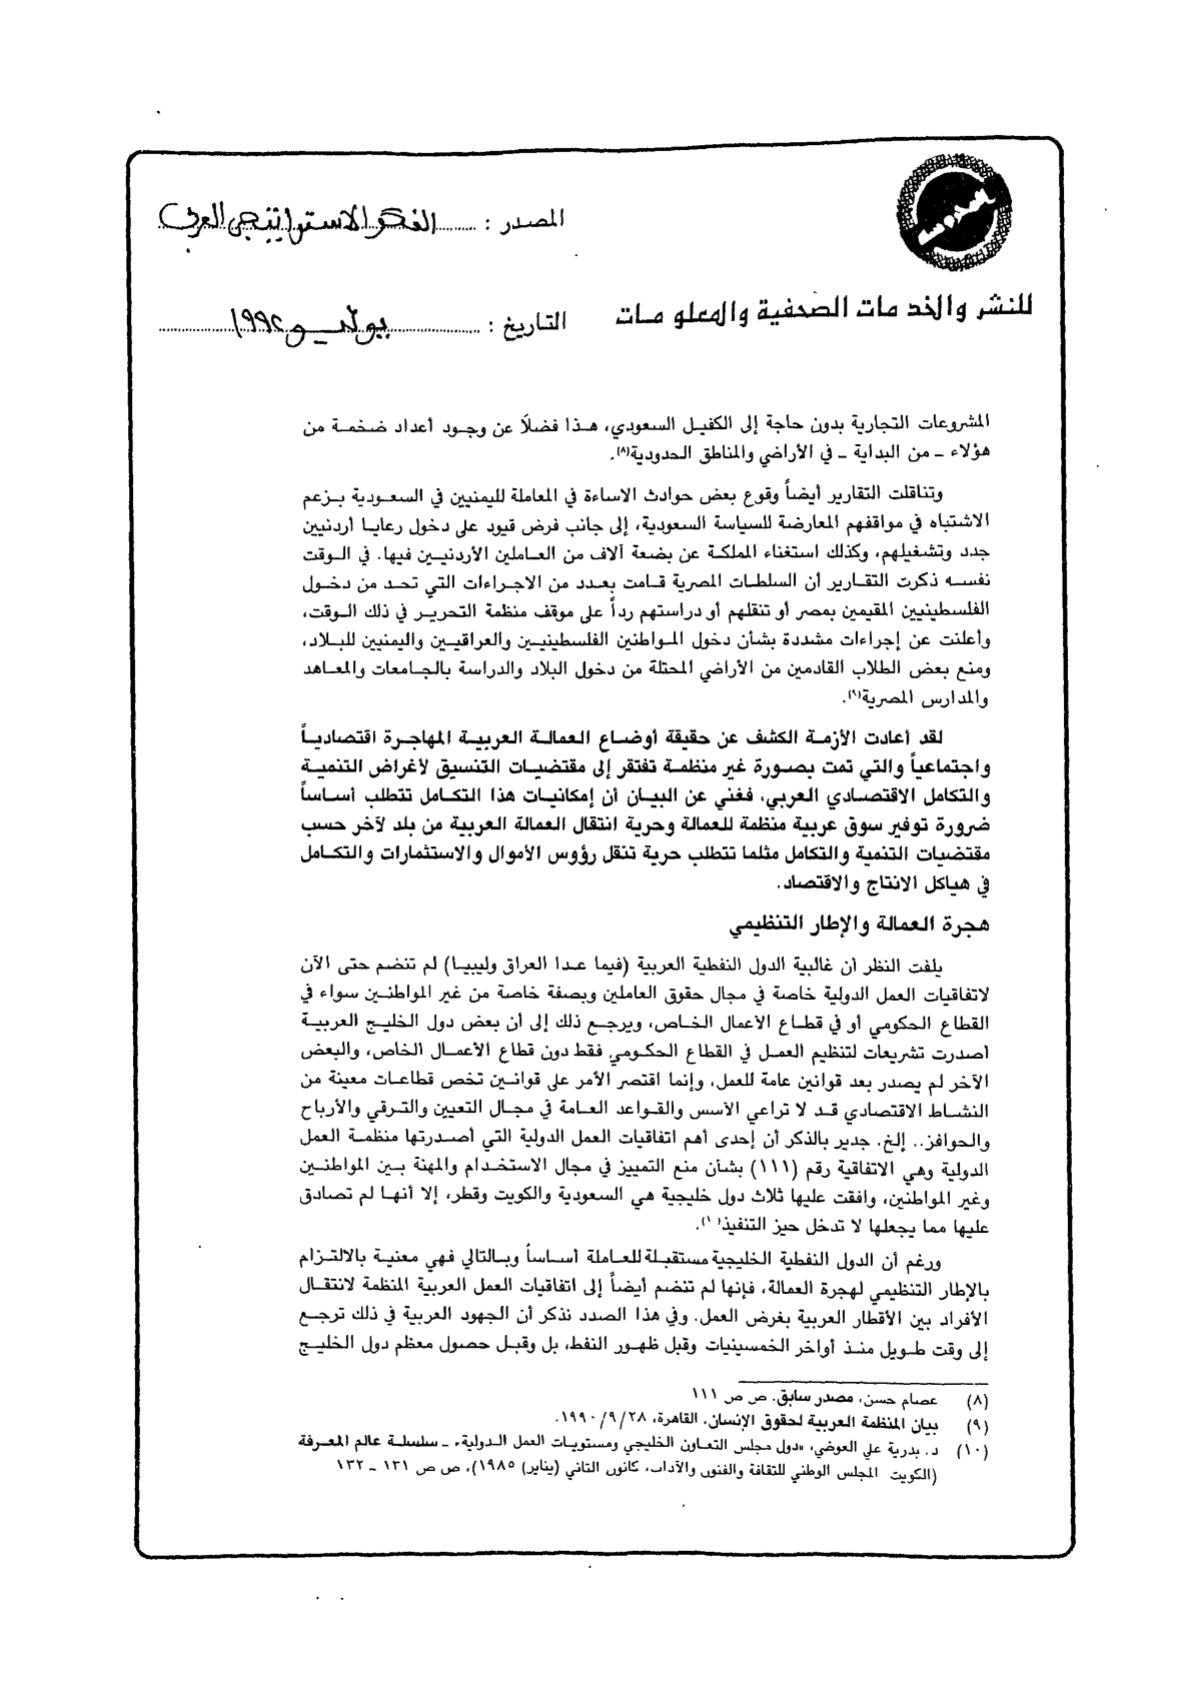 المصدر : الفكر الاستراتيجي العربي
للنشر والخدمات الصحفية والمعلومات
التاريخ : يوليو ١٩٩٢
المشروعات التجارية بدون حاجة إلى الكفيل السعودي، هذا فضلاً عن وجود أعداد ضخمة من
هؤلاء ـ من البداية ـ في الأراضي والمناطق الحدودية(٨).
وتناقلت التقارير أيضاً وقوع بعض حوادث الاساءة في المعاملة لليمنيين في السعودية بزعم
الاشتباه في مواقفهم المعارضة للسياسة السعودية، إلى جانب فرض قيود على دخول رعايا أردنيين
جدد وتشغيلهم، وكذلك استغناء المملكة عن بضعة آلاف من العاملين الأردنيين فيها. في الوقت
نفسه ذكرت التقارير أن السلطات المصرية قامت بعدد من الاجراءات التي تحد من دخول
الفلسطينيين المقيمين بمصر أو تنقلهم أو دراستهم رداً على موقف منظمة التحرير في ذلك الوقت،
وأعلنت عن إجراءات مشددة بشأن دخول المواطنين الفلسطينيين والعراقيين واليمنيين للبلاد،
ومنع بعض الطلاب القادمين من الأراضي المحتلة من دخول البلاد والدراسة بالجامعات والمعاهد
والمدارس المصرية(٩).
لقد أعادت الأزمة الكشف عن حقيقة أوضاع العمالة العربية المهاجرة اقتصادياً
واجتماعياً والتي تمت بصورة غير منظمة تفتقر إلى مقتضيات التنسيق لأغراض التنمية
والتكامل الاقتصادي العربي، فغني عن البيان أن إمكانيات هذا التكامل تتطلب أساساً
ضرورة توفير سوق عربية منظمة للعمالة وحرية انتقال العمالة العربية من بلد لآخر حسب
مقتضيات التنمية والتكامل مثلما تتطلب حرية تنقل رؤوس الأموال والاستثمارات والتكامل
في هياكل الانتاج والاقتصاد.
هجرة العمالة والإطار التنظيمي
يلفت النظر أن غالبية الدول النفطية العربية (فيما عدا العراق وليبيا) لم تنضم حتى الآن
لاتفاقيات العمل الدولية خاصة في مجال حقوق العاملين وبصفة خاصة من غير المواطنين سواء في
القطاع الحكومي أو في قطاع الأعمال الخاص، ويرجع ذلك إلى أن بعض دول الخليج العربية
أصدرت تشريعات لتنظيم العمل في القطاع الحكومي فقط دون قطاع الأعمال الخاص، والبعض
الآخر لم يصدر بعد قوانين عامة للعمل، وإنما اقتصر الأمر على قوانين تخص قطاعات معينة من
النشاط الاقتصادي قد لا تراعي الأسس والقواعد العامة في مجال التعيين والترقي والأرباح
والحوافز.. إلخ. جدير بالذكر أن إحدى أهم اتفاقيات العمل الدولية التي أصدرتها منظمة العمل
الدولية وهي الاتفاقية رقم (١١١) بشأن منع التمييز في مجال الاستخدام والمهنة بين المواطنين
وغير المواطنين، وافقت عليها ثلاث دول خليجية هي السعودية والكويت وقطر، إلا أنها لم تصادق
عليها مما يجعلها لا تدخل حيز التنفيذ(١٠).
ورغم أن الدول النفطية الخليجية مستقبلة للعاملة أساساً وبالتالي فهي معنية بالالتزام
بالإطار التنظيمي لهجرة العمالة، فإنها لم تنضم أيضاً إلى اتفاقيات العمل العربية المنظمة لانتقال
الأفراد بين الأقطار العربية بغرض العمل. وفي هذا الصدد نذكر أن الجهود العربية في ذلك ترجع
إلى وقت طويل منذ أواخر الخمسينيات وقبل ظهور النفط، بل وقبل حصول معظم دول الخليج
(٨) عصام حسن، مصدر سابق. ص ص ١١١
(٩) بيان المنظمة العربية لحقوق الإنسان، القاهرة، ١٩٩٠/٩/٢٨.
(١٠) د. بدرية علي العوضي، «دول مجلس التعاون الخليجي ومستويات العمل الدولية»، ـ سلسلة عالم المعرفة
(الكويت المجلس الوطني للثقافة والفنون والآداب، كانون الثاني (يناير) ١٩٨٥)، ص ص ١٣١ ـ ١٣٢